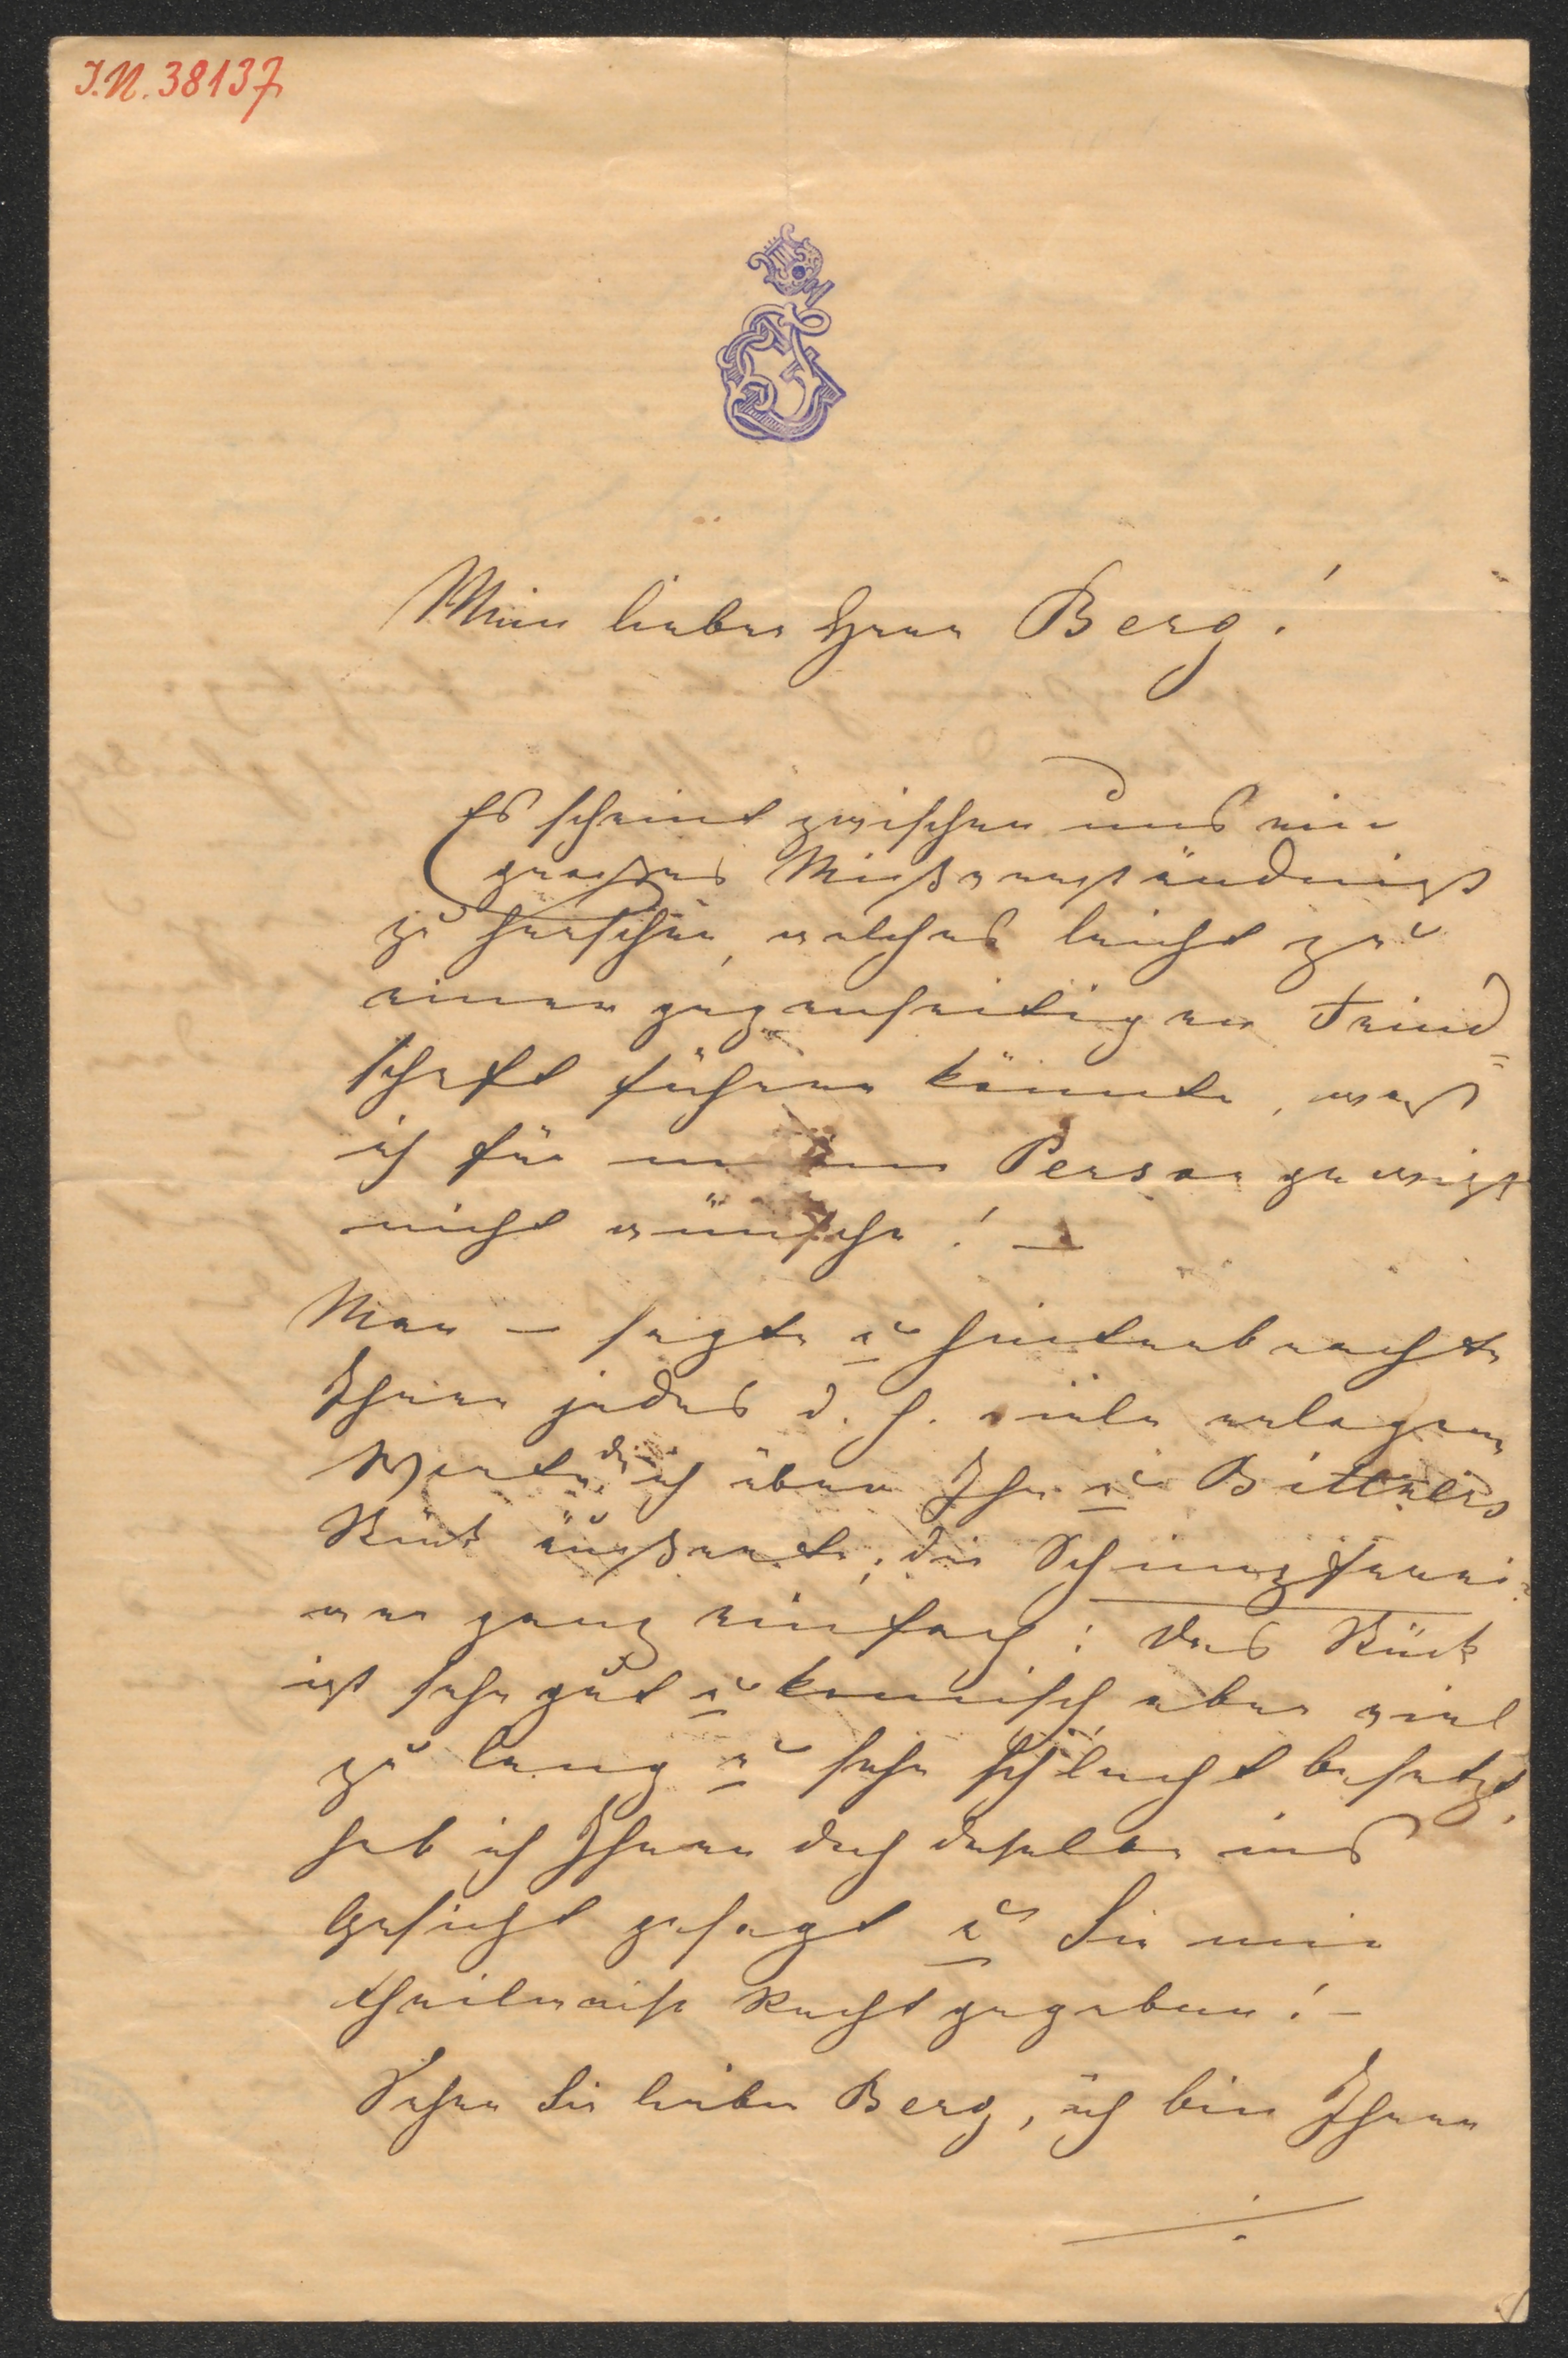 I.N. 38137
Mein lieber Herr Berg!
Es scheint zwischen uns ein
großes Mißverständniß
zu herschen, welches leicht zu
einer gegenseitigen Feind=
schaft führen könnte, was
ich für meine Person gewiß
nicht wünsche! –
Man – sagte u hinterbrachte
Ihnen jedes d. h. viele erlogene
Worte die ich über Ihr u Bittners
Stück äußerte; die Schimpferei
war ganz einfach: Das Stück
ist sehr gut u komisch aber viel
zu lang u sehr schlecht besetzt,
hab ich Ihnen doch daselbe ins
Gesicht gesagt u Sie mir
theilweise Recht gegeben! –
Sehen Sie lieber Berg, ich bin Ihnen